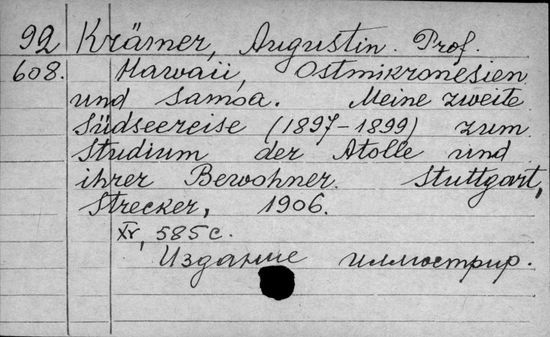 92 Krämer, Augustin. Prof.
608. Hawaii, Ostmikronesien
und Samoa. Meine zweite
Südseereise (1897-1899) zum
Studium der Atolle und
ihrer Bewohner. Stuttgart,
Strecker, 1906.
XV, 585 c.
Издание иллюстрир.